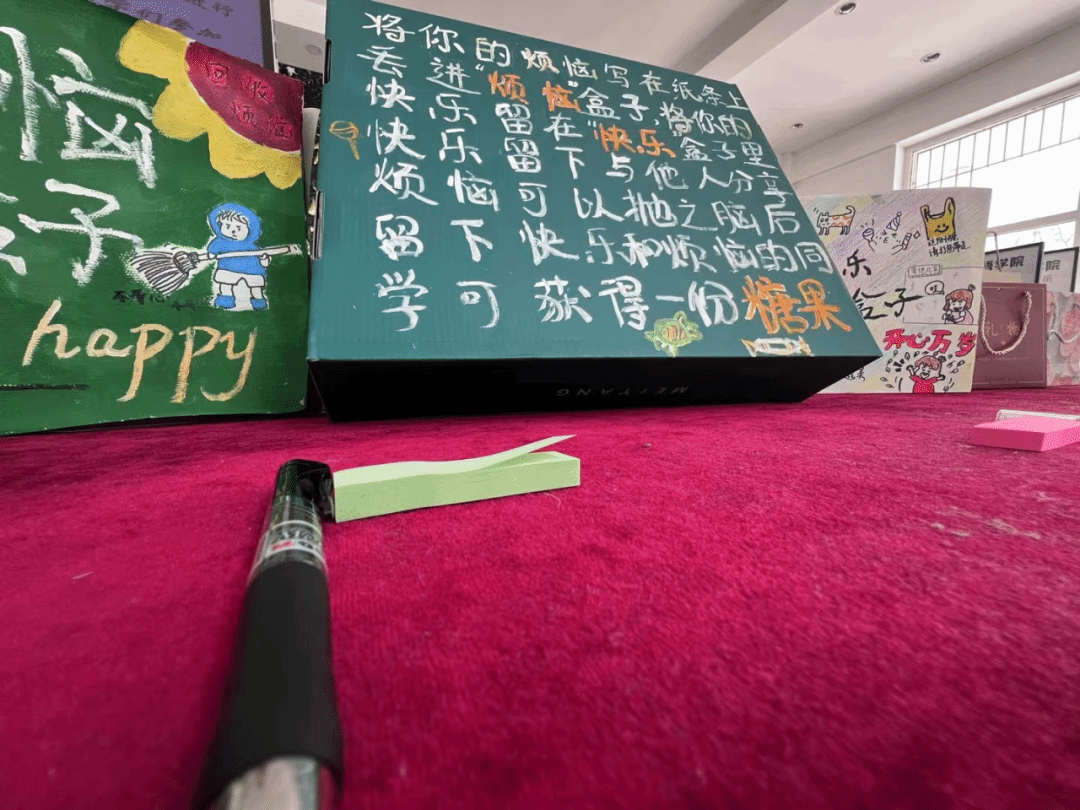 恼
子
happy
回收
烦恼
将你的烦恼写在纸条上
丢进"烦恼"盒子,将你的
快乐留在"快乐"盒子里
快乐留下与他人分享
烦恼可以抛之脑后
留下快乐和烦恼的同
学可获得一份糖果
MEIYANG
乐
盒子
开心万岁
学院
院